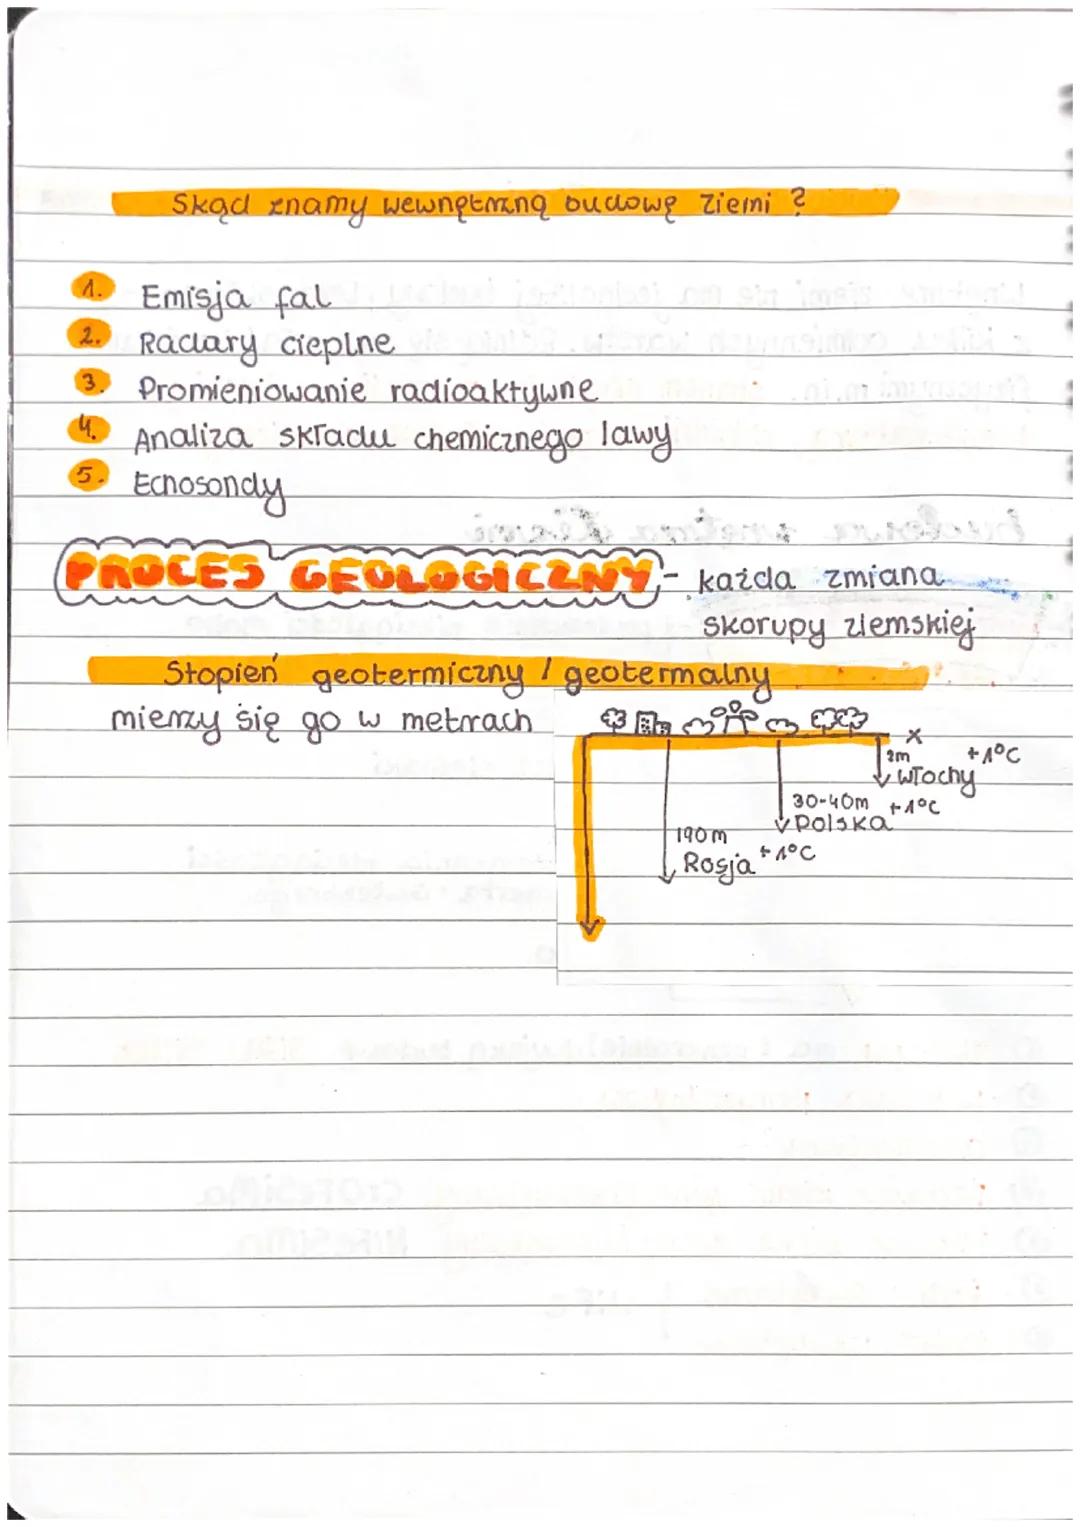 Skąd znamy wewnętrzną budowę Ziemi ?
1. Emisja fal
2. Radary cieplne
3. Promieniowanie radioaktywne
4. Analiza składu chemicznego lawy
5. Echosondy
PROCES GEOLOGICZNY - każda zmiana
skorupy ziemskiej
Stopień geotermiczny / geotermalny
mierzy się go w metrach
x
2m +1°C
Włochy
30-40m +1°C
Polska
190m
Rosja +1°C